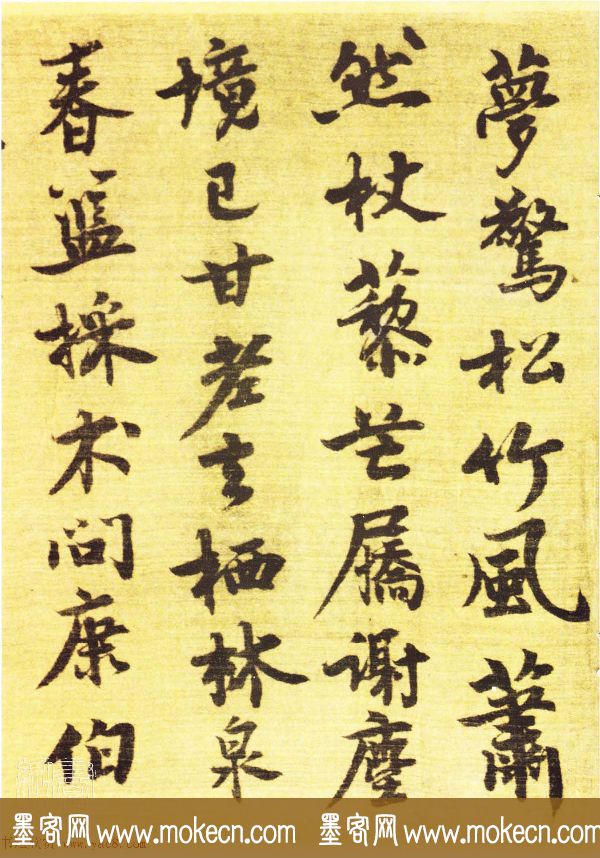 夢驚松竹風蕭
然杖藜芒屩謝塵
境已甘老去栖林泉
春籃採术問康伯
墨客网www.mokecn.com 墨客网www.mokecn.com
www.yac8.com